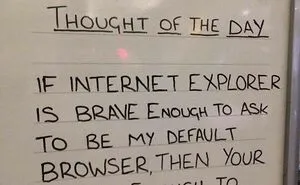 THOUGHT OF THE DAY
IF INTERNET EXPLORER
IS BRAVE ENOUGH TO ASK
TO BE MY DEFAULT
BROWSER, THEN YOUR
TO